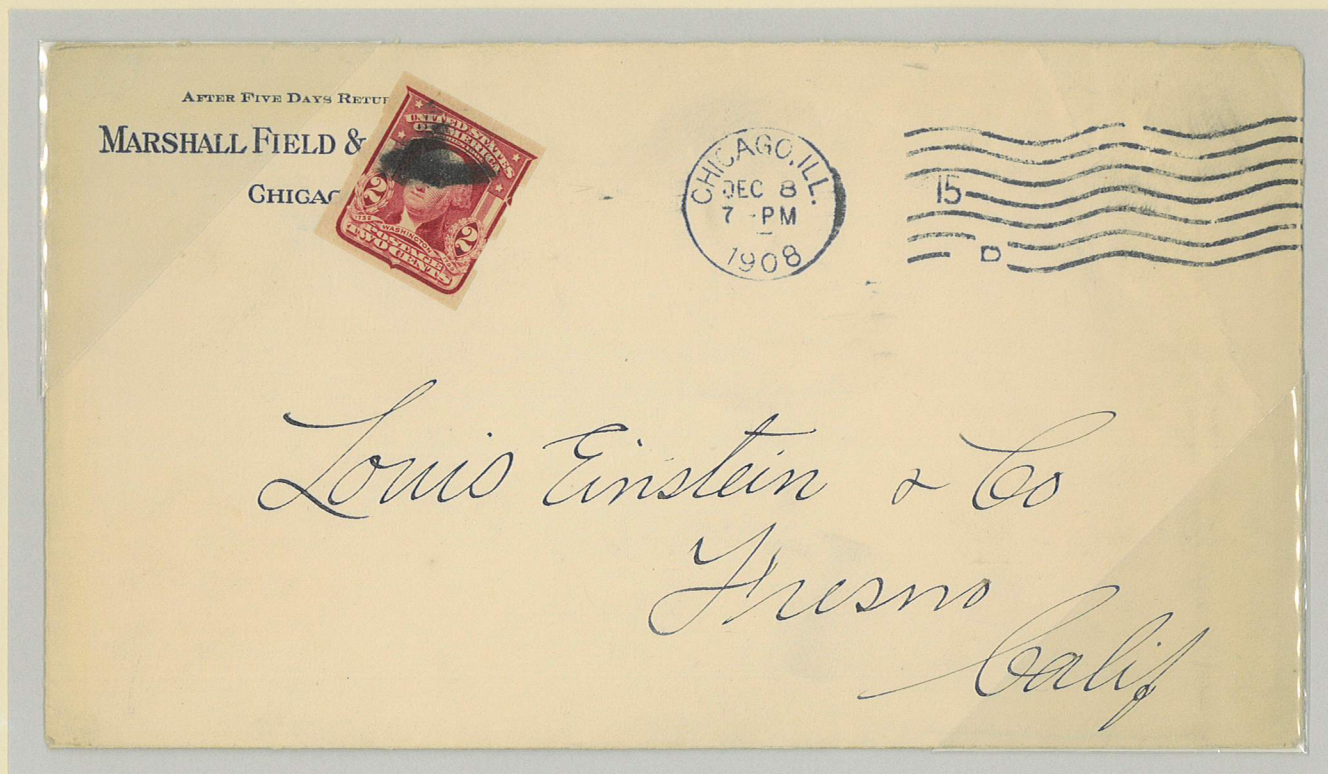 AFTER FIVE DAYS RETUR
MARSHALL FIELD &
CHICAG
UNITED STATES
OF AMERICA
2 2
1732 WASHINGTON
TWO CENTS
CHICAGO, ILL.
DEC 8
7 - PM
1908
15
D
Louis Einstein & Co
Fresno
Calif